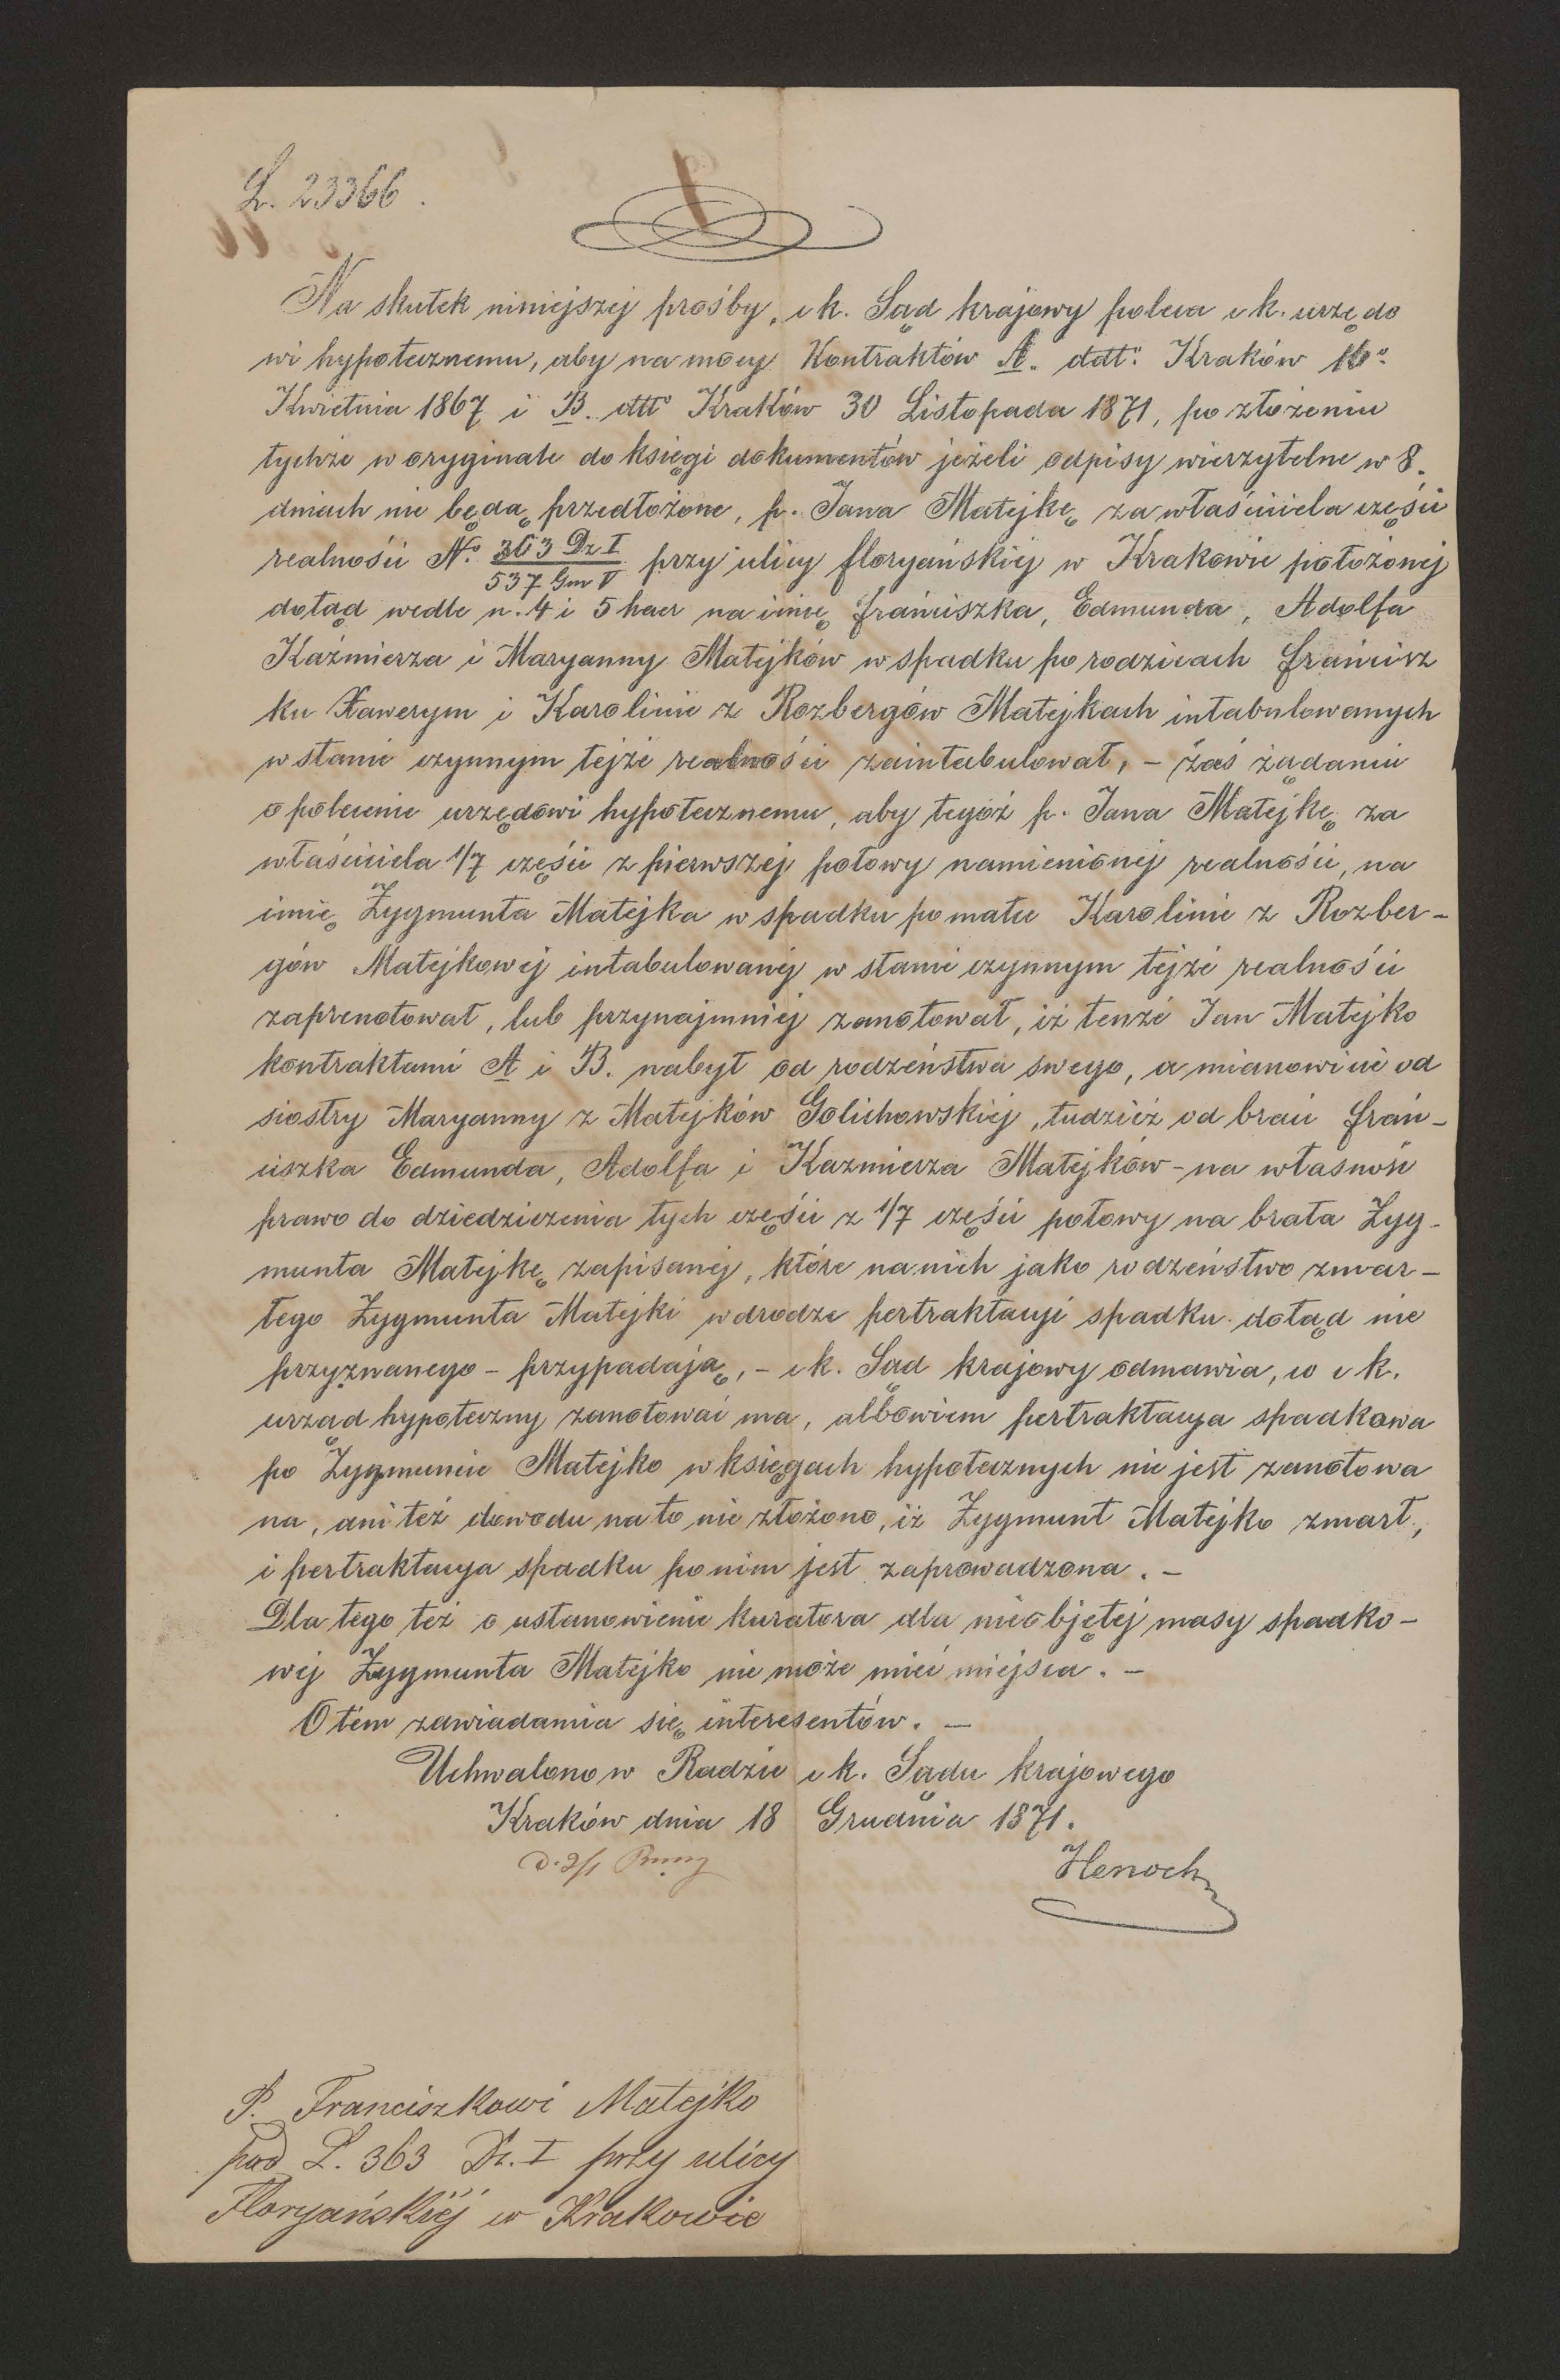 L. 23366.
Na skutek niniejszej prośby, c k. Sąd krajowy poleca c k. urzędo
wi hypotecznemu, aby na mocy Kontraktów A. ddt⁰ Kraków
Kwietnia 1867 i B. ddt⁰ Kraków 30 Listopada 1871, po złożeniu
tychże w oryginale do księgi dokumentów jeżeli odpisy wierzytelne w 8.
dniach nie będą przedłożone, p. Jana Matejkę za właściciela części
realności N⁰ 363 Dz I / 537 Gm V przy ulicy floryańskiej w Krakowie położonej
dotąd wedle n. 4 i 5 haer na imię frańciszka, Edmunda, Adolfa
Kaźmierza i Maryanny Matejków w spadku po rodzicach frańcisz
ku Xawerym i Karolinie z Rozbergów Matejkach intabulowanych
w stanie czynnym tejże realności zaintabulował, – zaś żądaniu
o polecenie urzędowi hypotecznemu, aby tegóż p. Jana Matejkę za
właściciela 1/7 części z pierwszej połowy namienionej realności, na
imię Zygmunta Matejka w spadku po matce Karolinie z Rozber-
gów Matejkowej intabulowanej w stanie czynnym tejże realności
zaprenotował, lub przynajmniej zanotował, iż tenże Jan Matejko
kontraktami A i B. nabył od rodzeństwa swego, a mianowicie od
siostry Maryanny z Matejków Golichowskiej, tudzież od braci frań-
ciszka Edmunda, Adolfa i Kazmierza Matejków – na własność
prawo do dziedziczenia tych części z 1/7 części połowy na brata Zyg-
munta Matejkę zapisanej, które na nich jako rodzeństwo zmar-
łego Zygmunta Matejki w drodze pertraktacyi spadku dotąd nie
przyznanego – przypadają, – c k. Sąd krajowy odmawia, co c k.
urząd hypoteczny zanotować ma, albowiem pertraktacya spadkowa
po Zygmuncie Matejko w księgach hypotecznych nie jest zanotowa
na, ani też dowodu na to nie złożono, iż Zygmunt Matejko zmarł,
i pertraktacya spadku po nim jest zaprowadzona. –
Dla tego też o ustanowienie kuratora dla nieobjętej masy spadko-
wej Zygmunta Matejko nie może mieć miejsca. –
O tém zawiadamia się interesentów. –
Uchwalono w Radzie c k. Sądu krajowego
Kraków dnia 18 Grudnia 1871.
Henoch
P. Franciszkowi Matejko
pod L. 363 Dz. I przy ulicy
Floryańskiéj w Krakowie